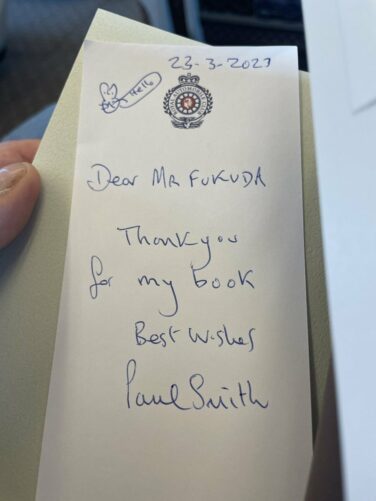 23-3-2023
Hello
Dear MR FUKUDA
Thank you
for my book
Best Wishes
Paul Smith